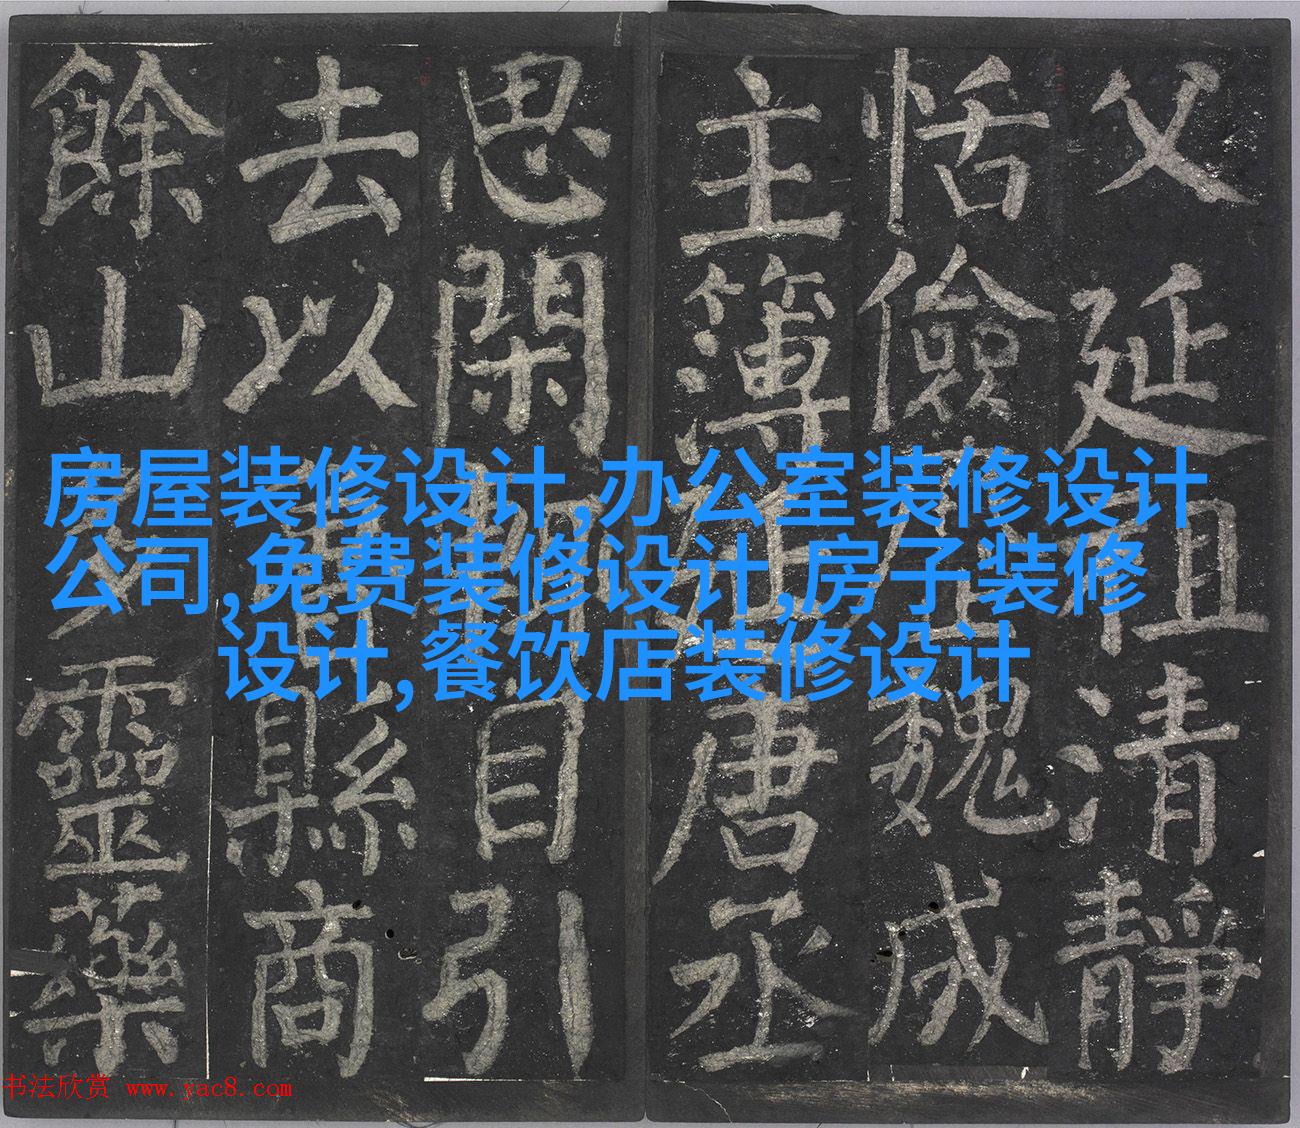 父延祖清靜
恬儉魏成
主簿延唐丞
思閑自引
去以縣商
餘山多靈藥
房屋装修设计,办公室装修设计
公司,免费装修设计,房子装修
设计,餐饮店装修设计
书法欣赏 www.yac8.com